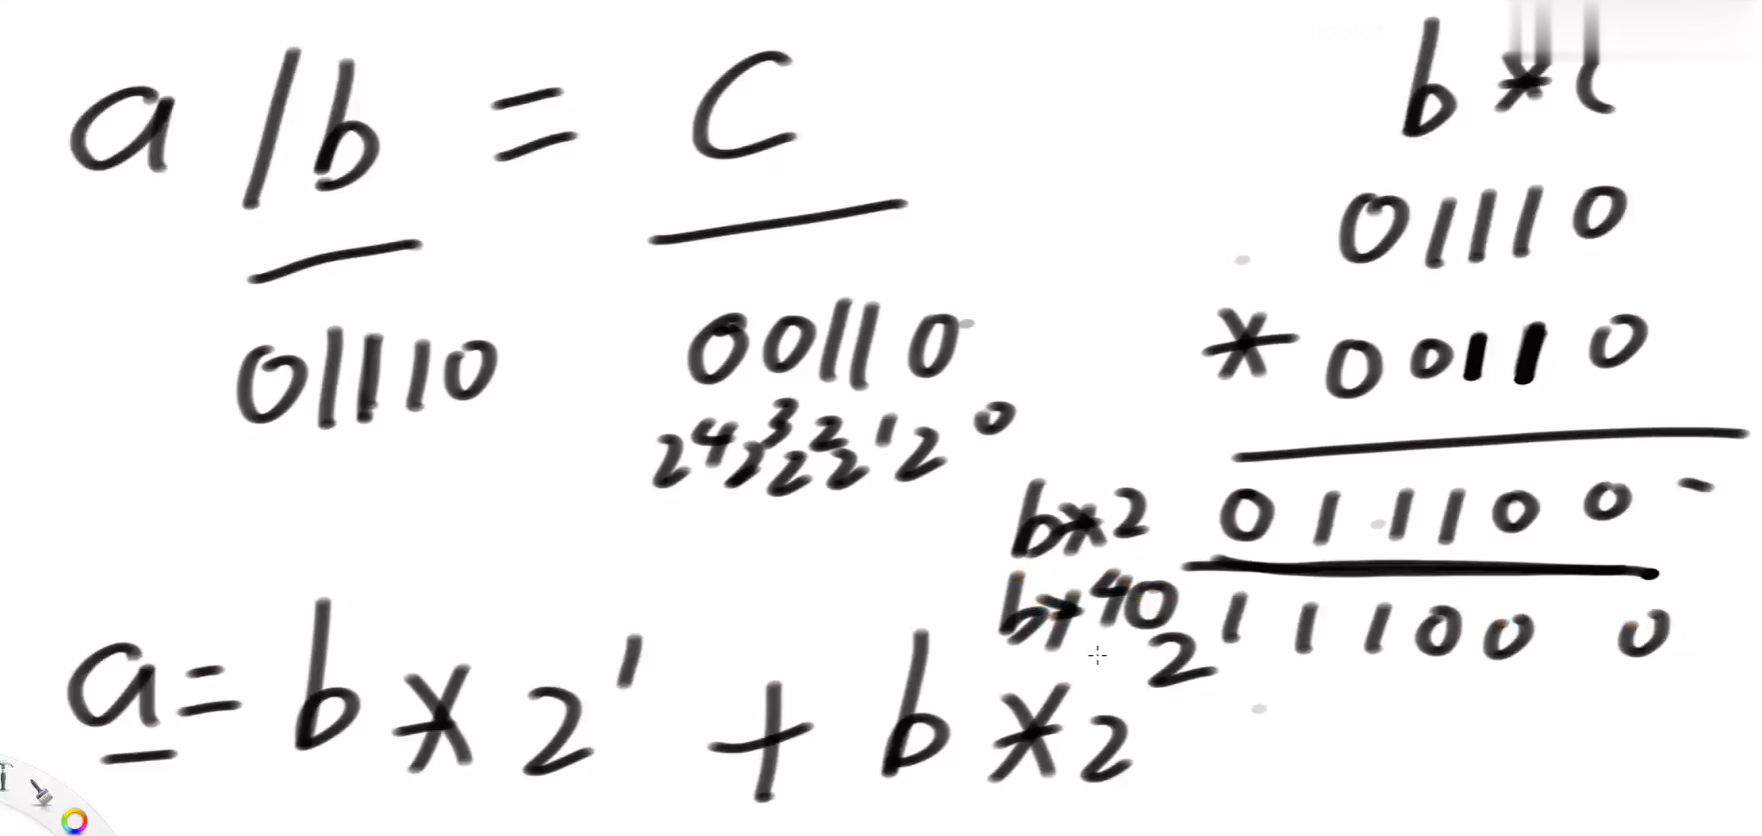 a / b = c
01110
00110
2⁴ 2³ 2² 2¹ 2⁰
b * c
01110
* 00110
b*2 011100 -
b*4 0111000
a = b * 2¹ + b * 2²